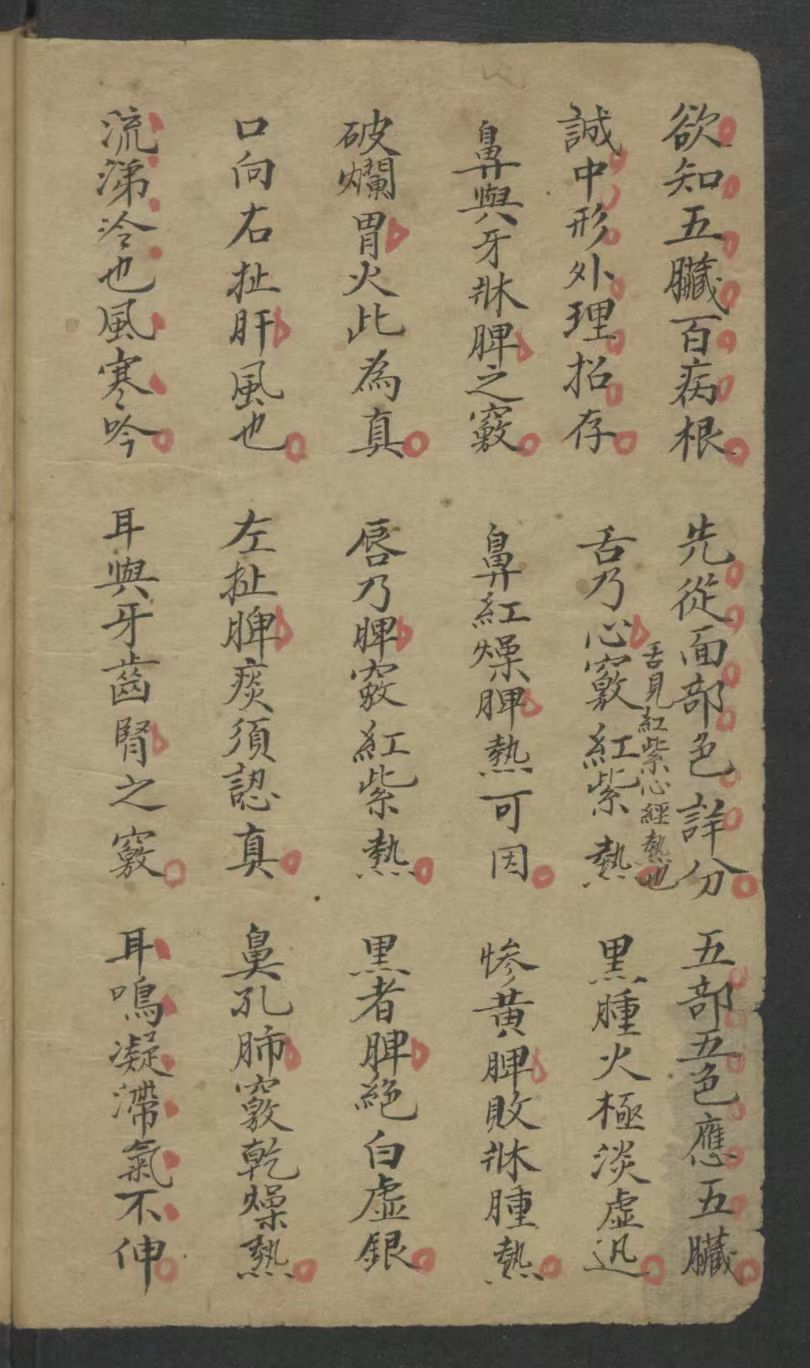 欲知五臟百病根　先從面部色詳分　五部五色應五臟
誠中形外理招存　舌乃心竅紅紫熱　黑腫火極淡虛迅
舌見紅紫心經熱也
鼻與牙牀脾之竅　鼻紅燥脾熱可因　慘黃脾敗牀腫熱
破爛胃火此為真　唇乃脾竅紅紫熱　黑者脾絕白虛銀
口向右扯肝風也　左扯脾痰須認真　鼻孔肺竅乾燥熱
流涕冷也風寒吟　耳與牙齒腎之竅　耳鳴凝滯氣不伸